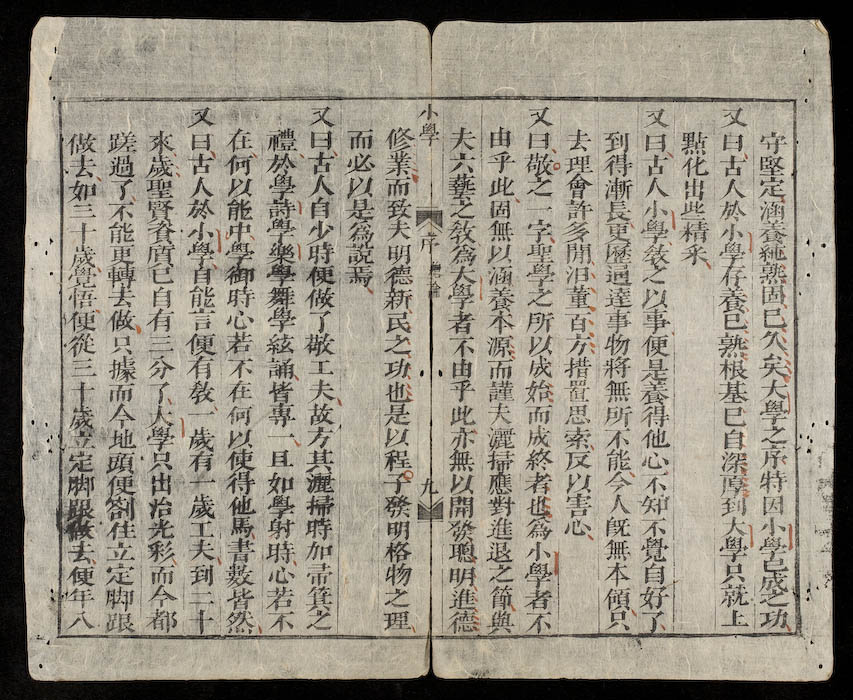 守堅定涵養純熟固已久矣大學之序特因小學已成之功
又曰古人於小學存養已熟根基已自深厚到大學只就上
點化出些精采
又曰古人小學敎之以事便是養得他心不知不覺自好了
到得漸長更歷通達事物將無所不能今人旣無本傾只
去理會許多閒汨董百方措置思索反以害心
又曰敬之一字聖學之所以成始而成終者也爲小學者不
由乎此固無以涵養本源而謹夫灑掃應對進退之節與
夫六藝之敎爲大學者不由乎此亦無以開發聰明進德
小學 序 總論 九
修業而致夫明德新民之功也是以程子發明格物之理
而必以是爲說焉
又曰古人自少時便做了敬工夫故方其灑掃時加帚箕之
禮於學詩學樂學舞學絃誦皆專一且如學射時心若不
在何以能中學御時心若不在何以使得他馬書數皆然
又曰古人於小學自能言便有敎一歲有一歲工夫到二十
來歲聖賢資質已自有三分了大學只出治光彩而今都
蹉過了不能更轉去做只據而今地頭便劄住立定脚跟
做去如三十歲覺悟便從三十歲立定脚跟做去便年八